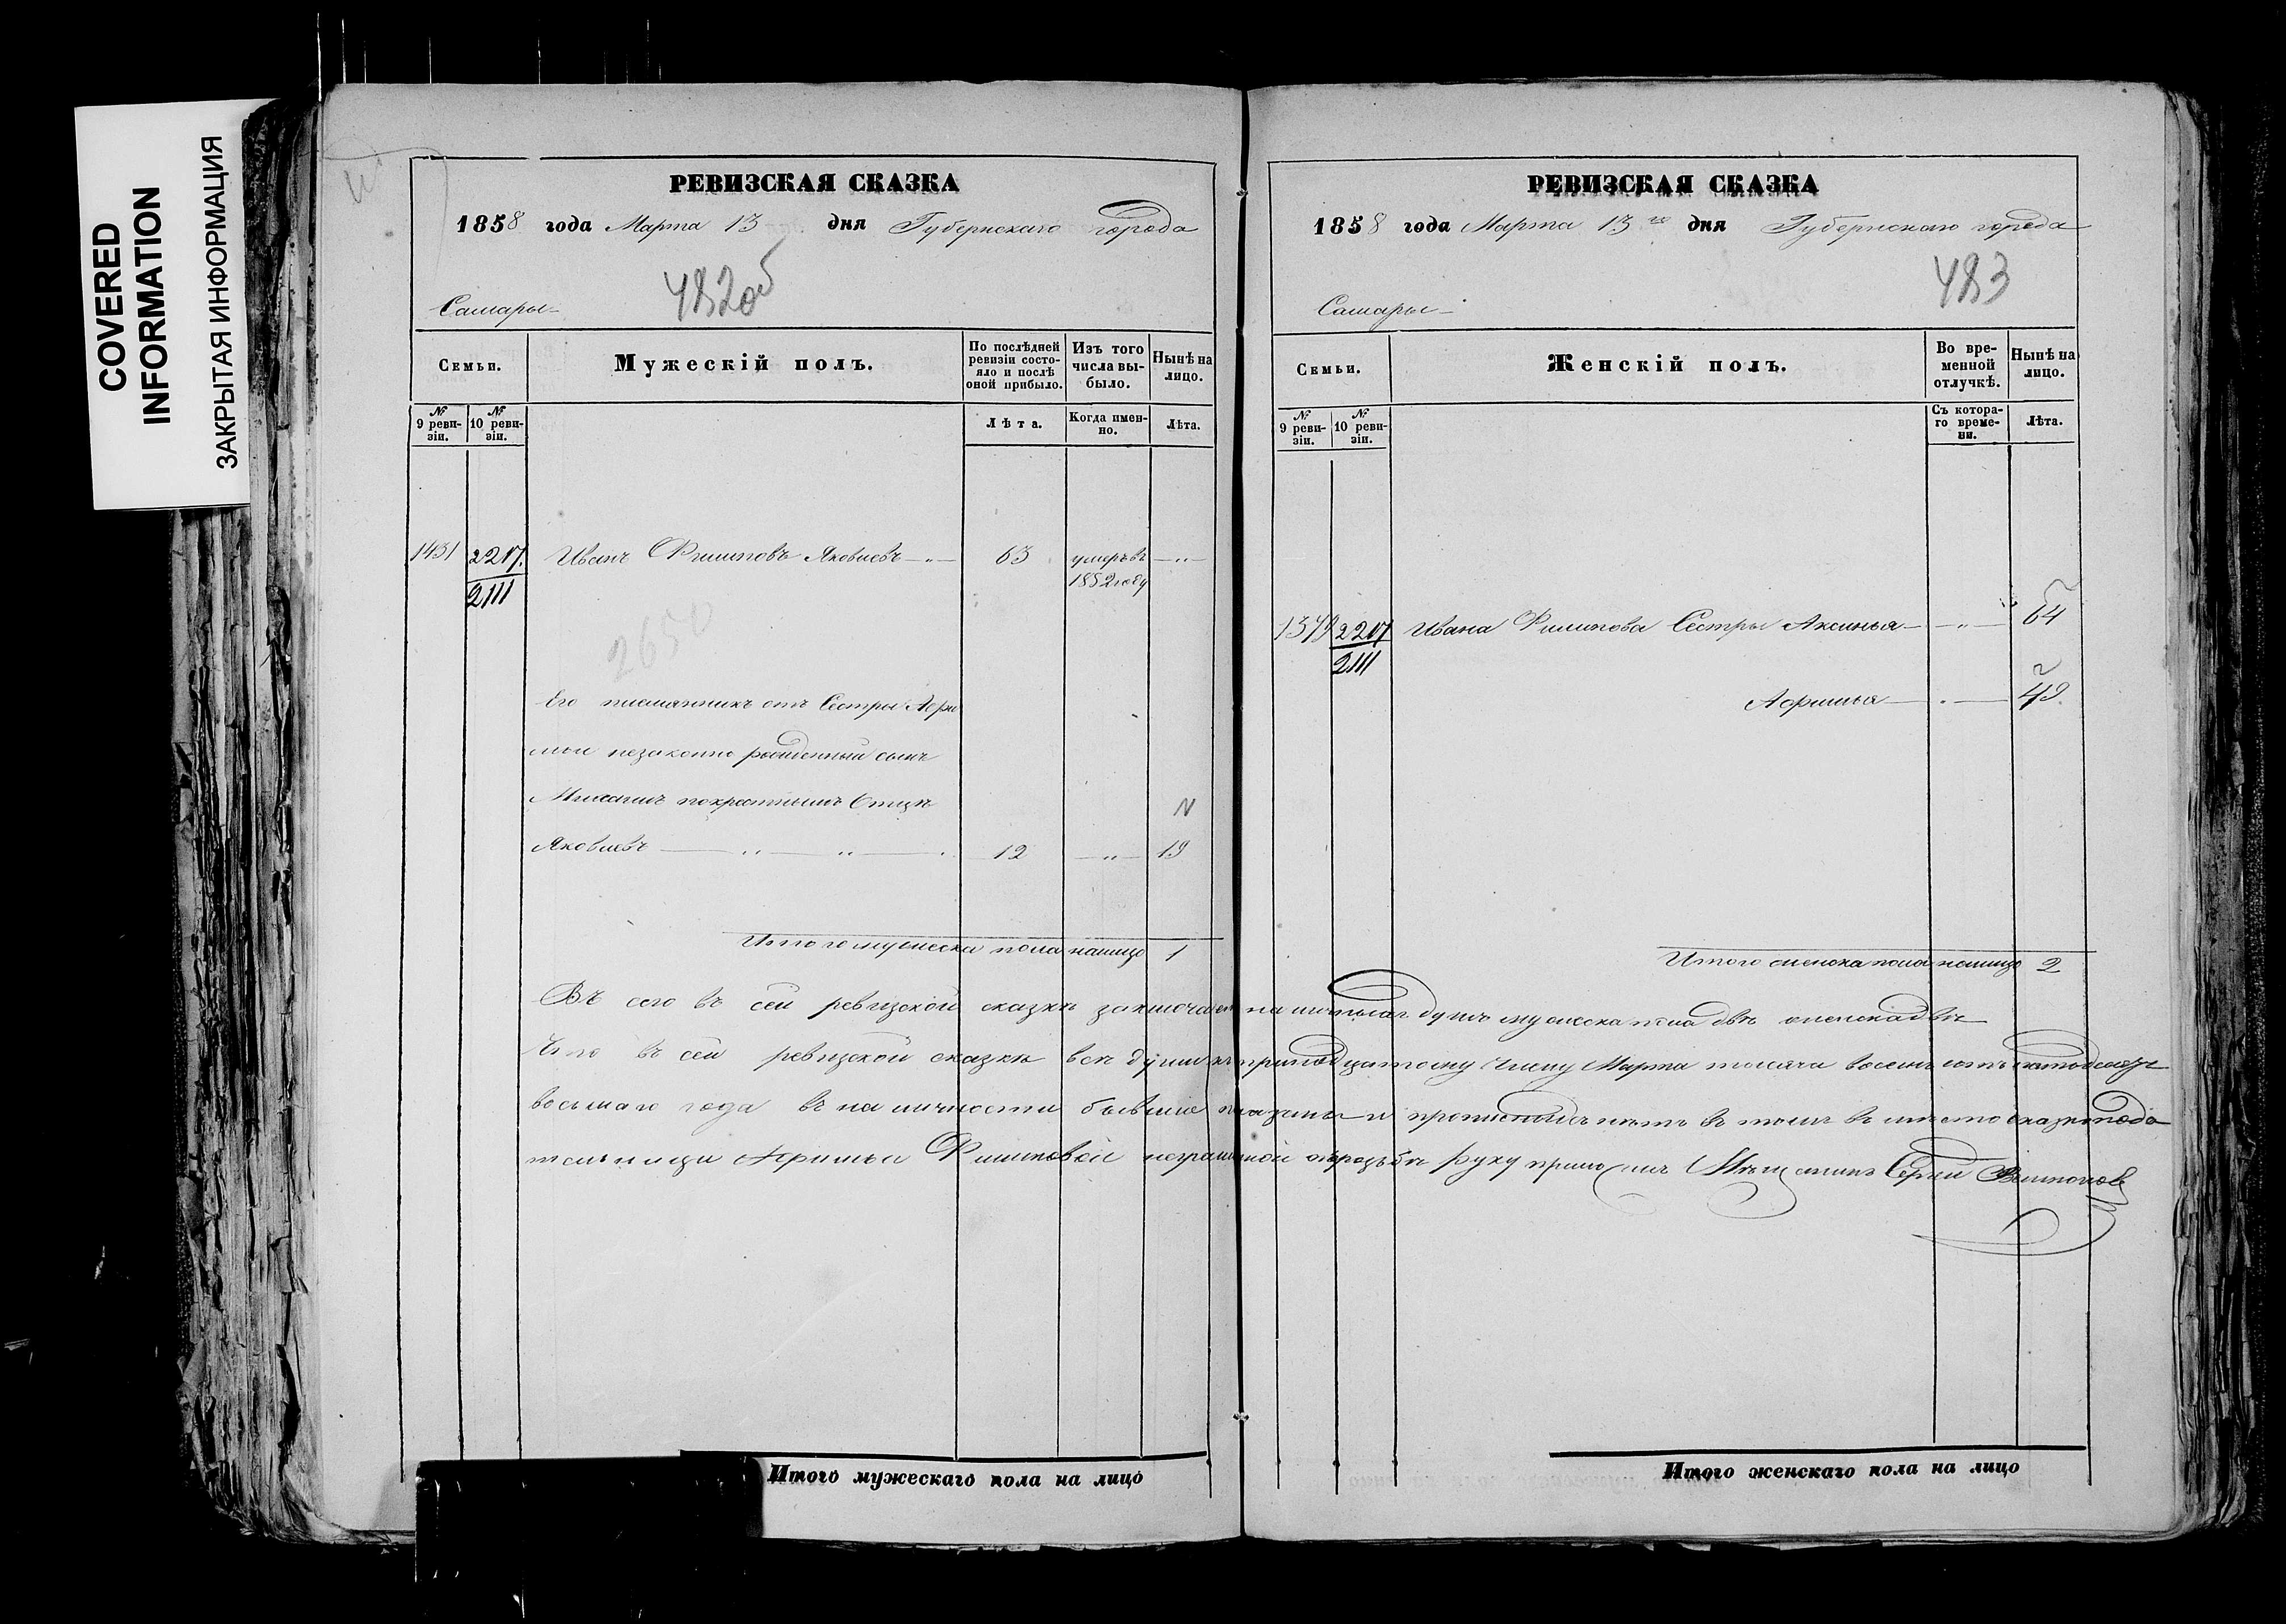 COVERED
INFORMATION
ЗАКРЫТАЯ ИНФОРМАЦИЯ
РЕВИЗСКАЯ СКАЗКА
1858 года Марта 13 дня Губернскаго города
482об
Самары
Семьи.
Мужескій полъ.
По послѣдней ревизіи состояло и послѣ оной прибыло.
Изъ того числа выбыло.
Нынѣ на лицо.
№ 9 ревизіи.
№ 10 ревизіи.
Лѣта.
Когда именно.
Лѣта.
1431 2217. Иванъ Филиповъ Яковлевъ 63 умеръ въ
2111 1852 году
2650
Его племянникъ отъ Сестры Афи
мьи незаконно рожденный сынъ
покрестнымъ Отцѣ
Яковлевъ 12 19
N
Итого мужеска пола налицо 1
РЕВИЗСКАЯ СКАЗКА
1858 года Марта 13го дня Губернскаго города
483
Самары
Семьи.
Женскій полъ.
Во временной отлучкѣ.
Нынѣ на лицо.
№ 9 ревизіи.
№ 10 ревизіи.
Съ котораго времени.
Лѣта.
2217 Ивана Филипова Сестры Аксинья 64
2111
Афимья 49
Итого женска пола налицо 2
сего въ сей ревизской сказки заключается душъ мужеска пола двѣ женска двѣ
Что въ сей ревизской сказки всѣ души къ тринадцатому Числу Марта тысяча восемь сотъ пятьдесятъ
восьмаго года въ наличности бывшие показаны и прописныхъ нѣтъ въ томъ в мѣсто сказкопода
тельницы Афимьи Филиповой неграмотной руку приложилъ Мѣщанинъ Сергей
Итого мужескаго пола на лицо
Итого женскаго пола на лицо